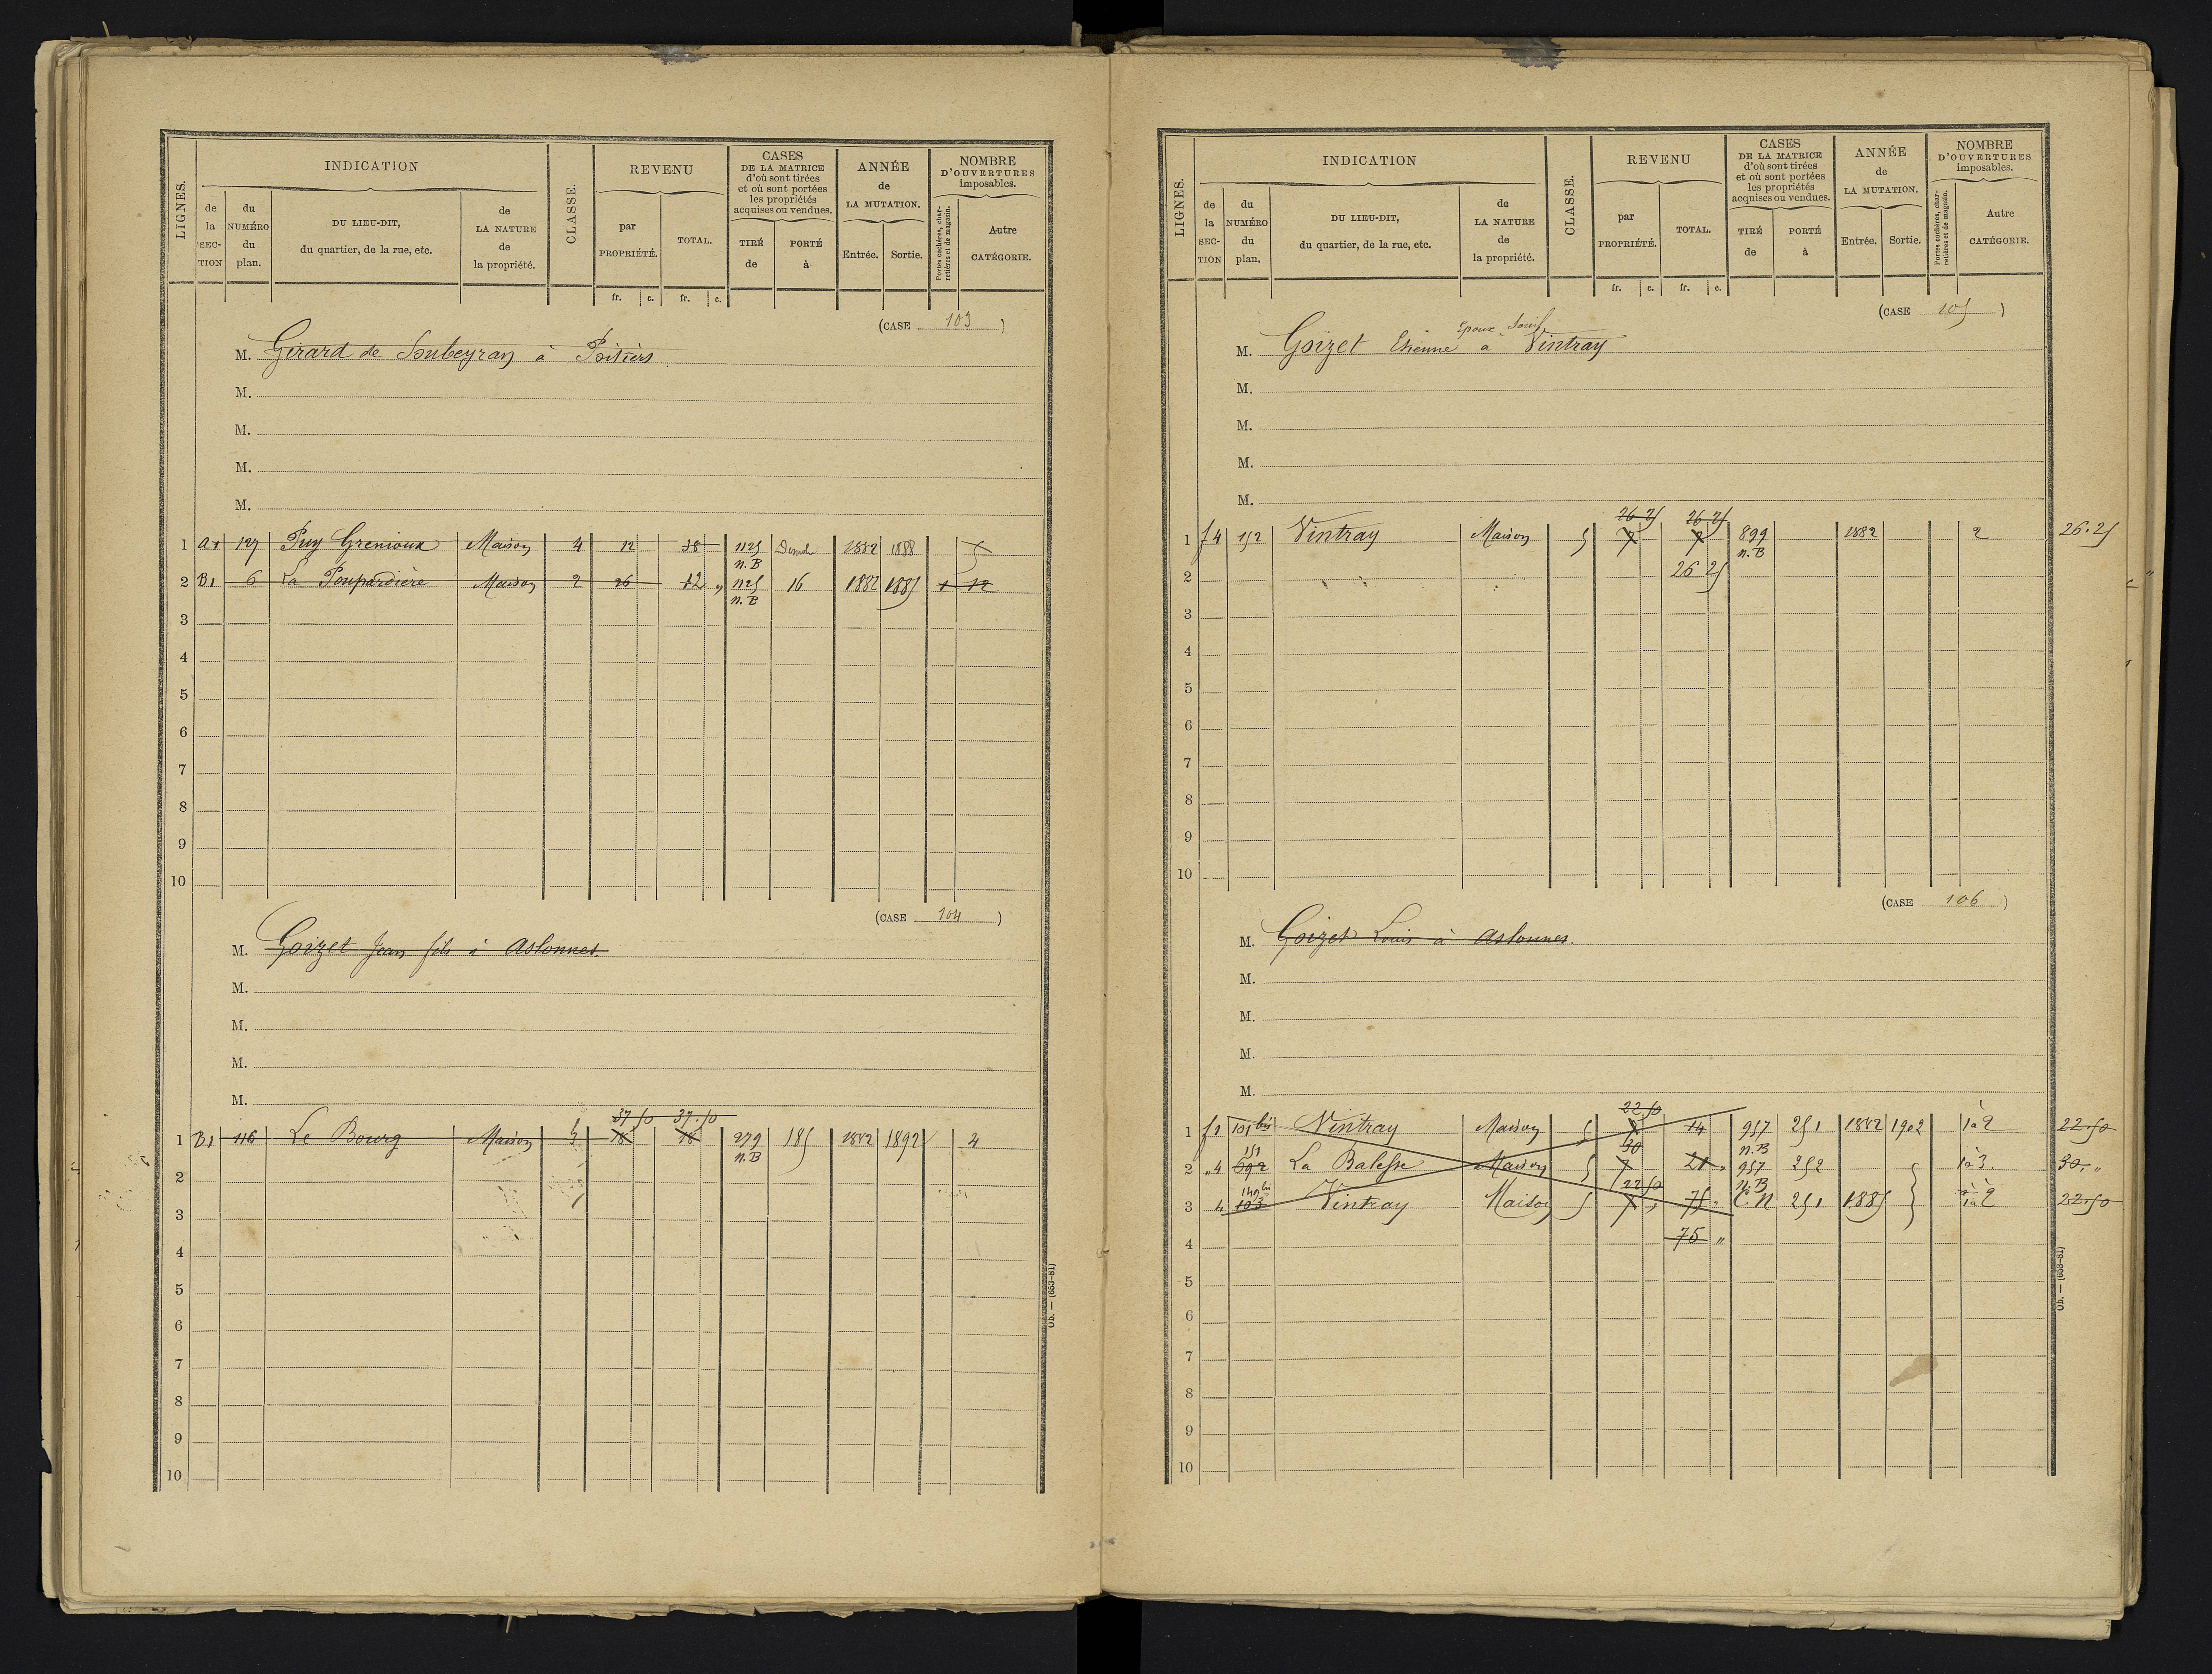 LIGNES.
INDICATION
de la SECTION
du NUMÉRO du plan.
DU LIEU-DIT, du quartier, de la rue, etc.
de LA NATURE de la propriété.
CLASSE.
REVENU
par PROPRIÉTÉ.
TOTAL.
CASES DE LA MATRICE d'où sont tirées et où sont portées les propriétés acquises ou vendues.
TIRÉ de
PORTÉ à
ANNÉE de LA MUTATION.
Entrée.
Sortie.
NOMBRE D'OUVERTURES imposables.
Portes cochères, charretières et de magasin.
Autre CATÉGORIE.
fr. c. fr. c.
(CASE 103)
M. Girard de Soubeyran à Poitiers
M.
M.
M.
M.
1 A1 127 Puy Grenioux Maison 4 12 38 1125 1882 1888 5
n. B
2 B1 6 La Poupardière Maison 2 26 12 " 1125 16 1882 1885 1 12
n. B
3
4
5
6
7
8
9
10
(CASE 104)
M. Goizet Jean fils à Aslonnes.
M.
M.
M.
M.
37 50 37.50
1 B1 116 Le Bourg Maison 5 18 18 279 185 1882 1892 4
n. B
2
3
4
5
6
7
8
9
10
Ob. — (653-81)
LIGNES.
INDICATION
de la SECTION
du NUMÉRO du plan.
DU LIEU-DIT, du quartier, de la rue, etc.
de LA NATURE de la propriété.
CLASSE.
REVENU
par PROPRIÉTÉ.
TOTAL.
CASES DE LA MATRICE d'où sont tirées et où sont portées les propriétés acquises ou vendues.
TIRÉ de
PORTÉ à
ANNÉE de LA MUTATION.
Entrée.
Sortie.
NOMBRE D'OUVERTURES imposables.
Portes cochères, charretières et de magasin.
Autre CATÉGORIE.
fr. c. fr. c.
(CASE 105)
Epoux
M. Goizet Etienne à Vintray
M.
M.
M.
M.
26 25 26 25
1 f4 152 Vintray Maison 5 7 7 899 1882 2 26.25
n. B
2 26 25
3
4
5
6
7
8
9
10
(CASE 106)
M. Goizet Louis à Aslonnes.
M.
M.
M.
M.
22 50
1 f2 101 bis Vintray Maison 5 7 14 957 251 1882 1902 1à2 22.50
151 30 n. B
2 "4 592 La Balesse Maison 5 7 21 " 957 252 1à3. 30. "
149 bis 22 50 n. B
3 4 103 Vintray Maison 5 7 75 " C. N 251 1885 1à2 22.50
4 75 "
5
6
7
8
9
10
Ob. — (653-81)